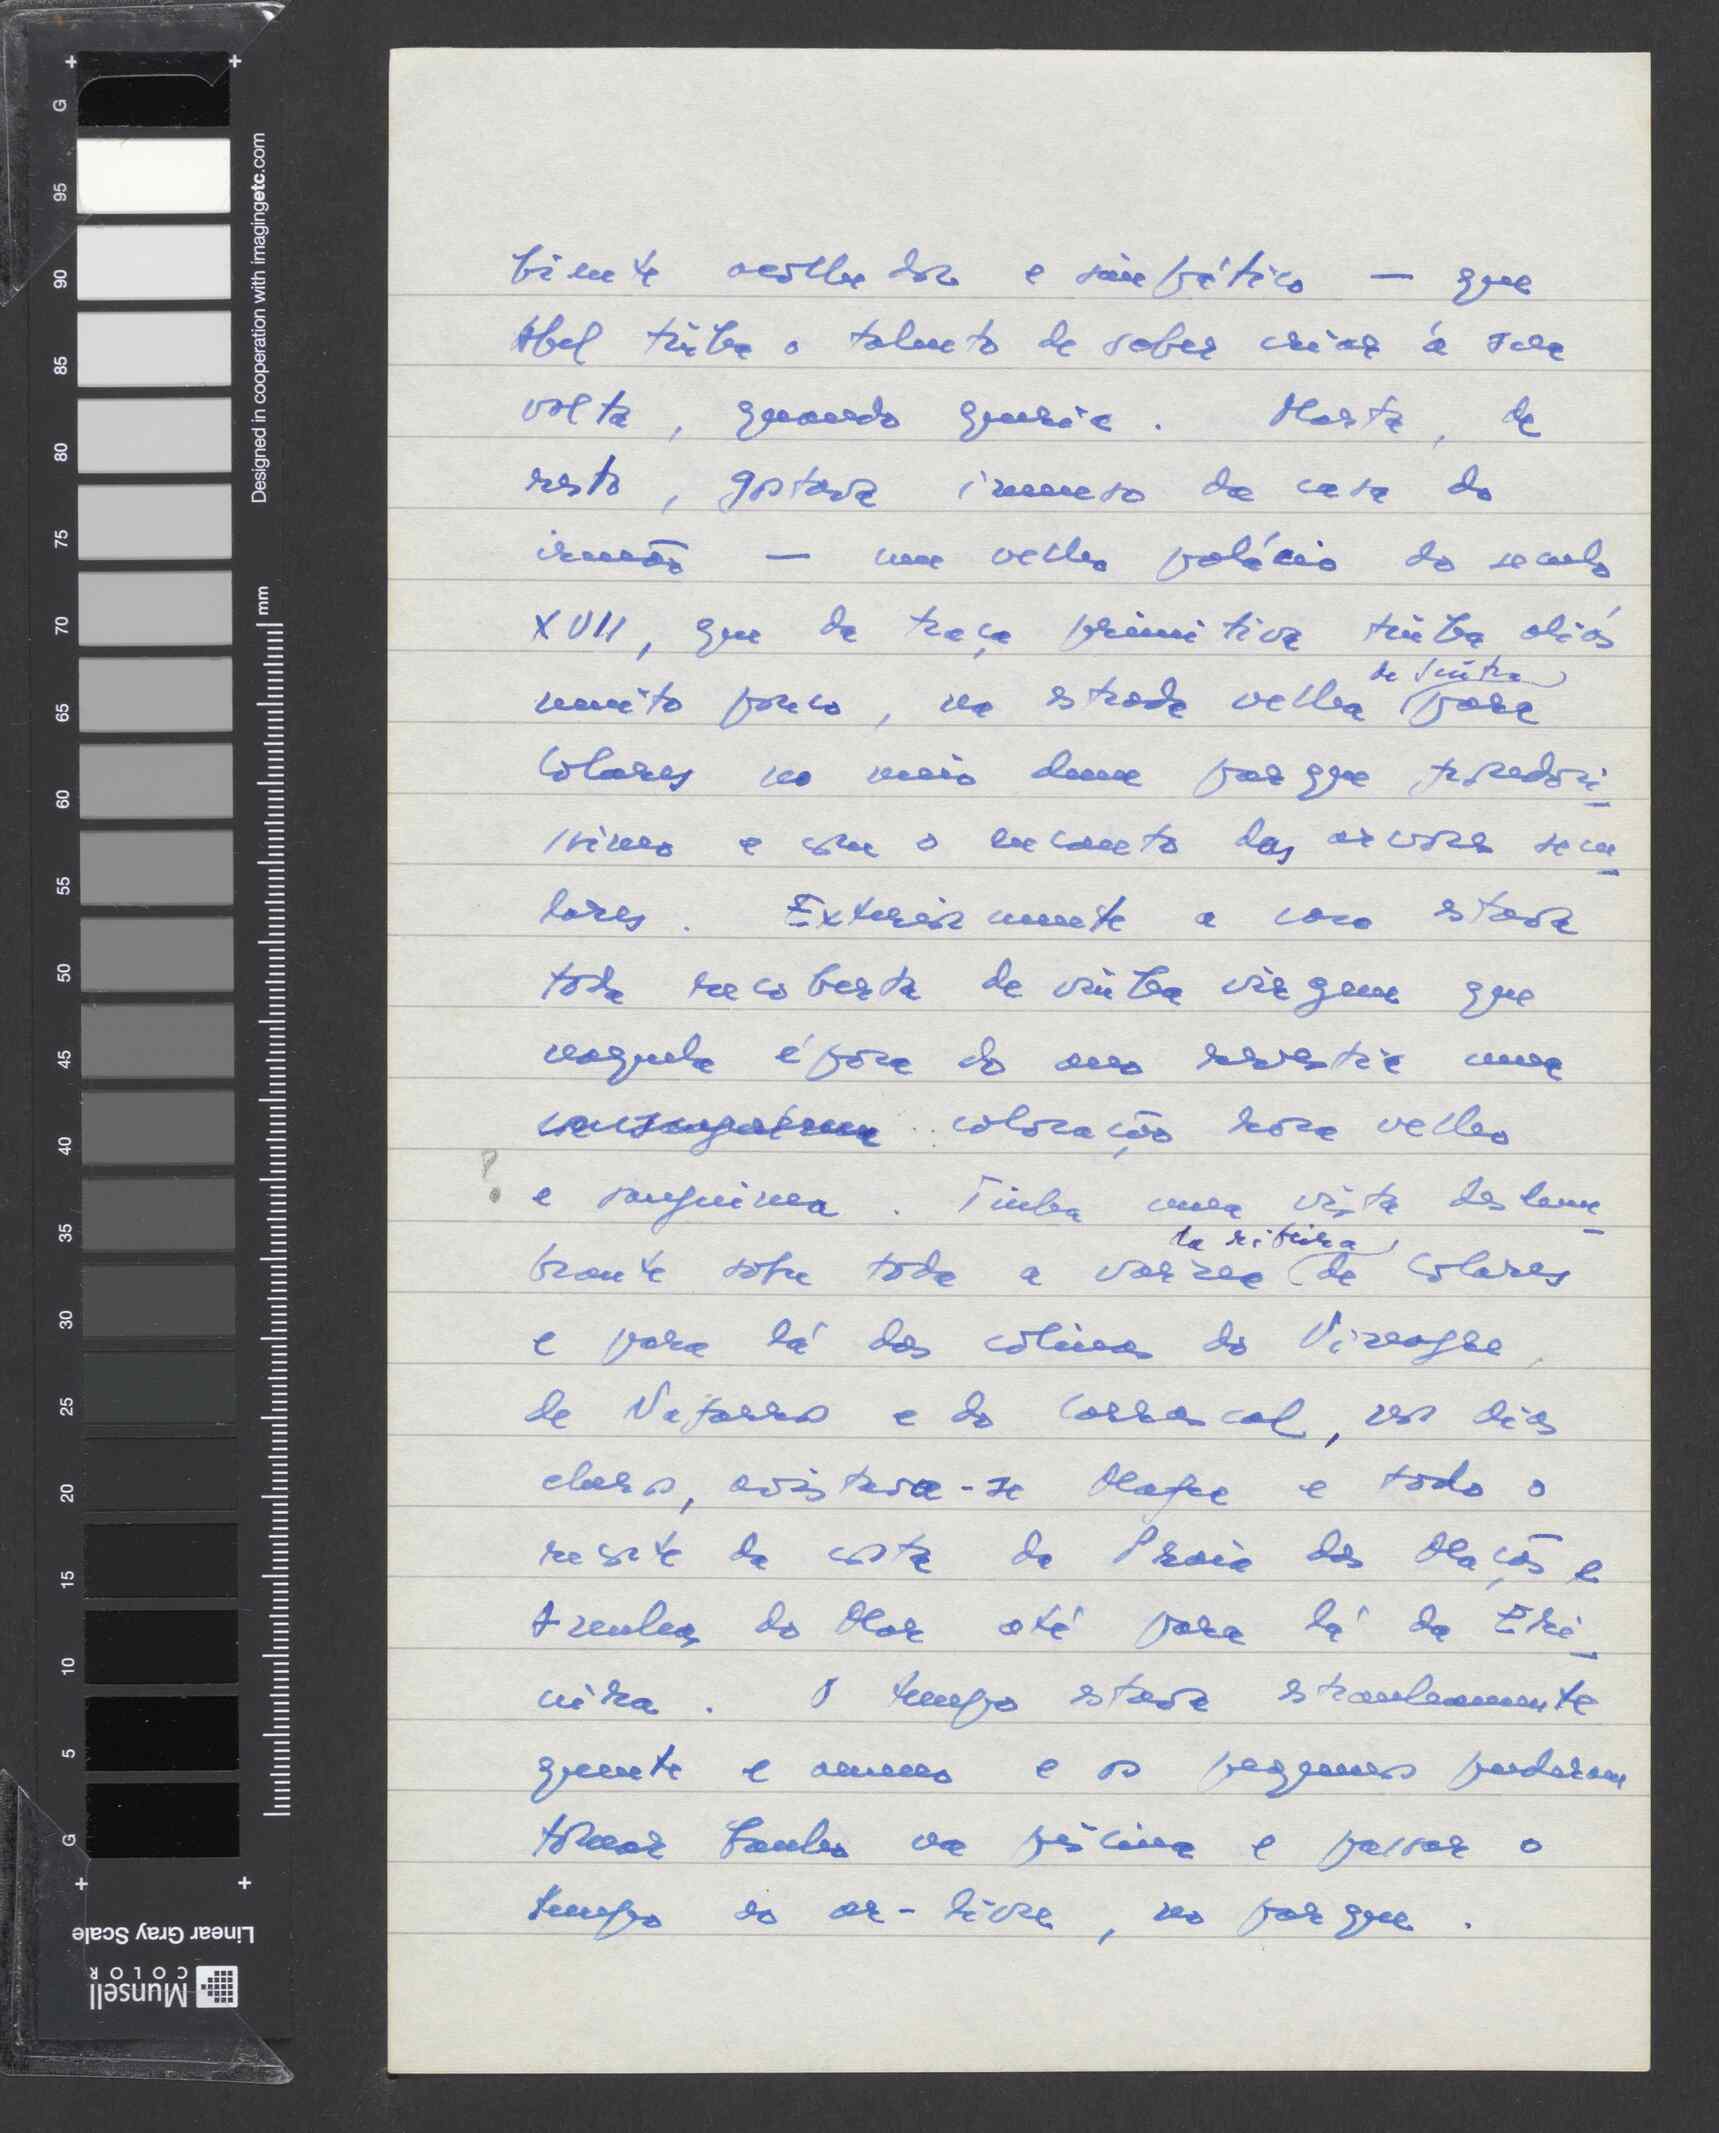 biente acolhedor e simpático — que
Abel tinha o talento de saber criar á sua
volta, quando queria. Marta, de
resto, gostava imenso da casa do
irmão — um velho palácio do seculo
XVII, que da traça primitiva tinha aliás
de Sintra
muito pouco, na estrada velha para
Colares no meio dum parque,
ssimo e com o encanto das arvores secu-
lares. Exteriormente a casa estava
toda recoberta de vinha virgem que
naquela época do ano revestia uma
coloração roxa velho
? e sanguinea. Tinha uma vista deslum-
da ribeira
brante sobre toda a varzea de Colares
e para lá das colinas do Vinagre,
de Nafarros e do Carrascal, nos dias
claros, avistava-se Mafra e todo o
recorte da costa da Praia das Maçãs e
Azenhas do Mar até para lá da Eri-
ceira. O tempo estava estranhamente
quente e ameno e os pequenos puderam
tomar banho na piscina e passar o
tempo ao ar-livre, no parque.
G 95 90 85 80 75 70 65 60 55 50 45 40 35 30 25 20 15 10 5 G
Designed in cooperation with imagingetc.com
mm
Linear Gray Scale
Munsell
COLOR